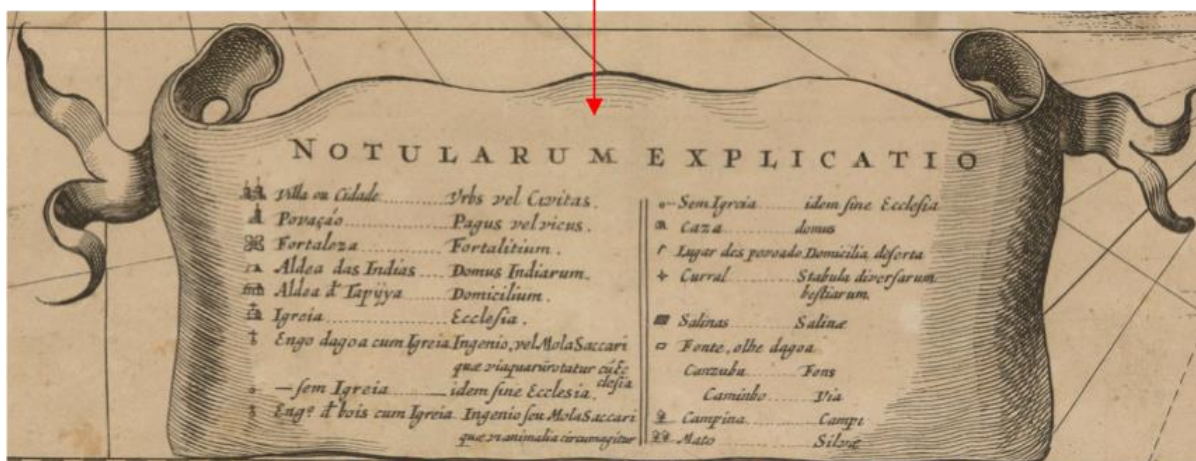 NOTULARUM EXPLICATIO
Villa ou Cidade Vrbs vel Civitas.
Povação Pagus vel vicus.
Fortaleza Fortalitium.
Aldea das Indias Domus Indiarum.
Aldea đ Tapÿya Domicilium.
Igreia Ecclesia.
Engo dagoa cum Igreia Ingenio, vel Mola Saccari
quæ vi aquarū rotatur cū Ec
clesia
— sem Igreia idem sine Ecclesia.
Engº đ bois cum Igreia Ingenio seu Mola Saccari
quæ vi animalia circumagitur
Sem Igreia idem sine Ecclesia
Caza domus
Lugar des povoado Domicilia deserta
Curral Stabula diversarum
bestiarum.
Salinas Salinæ
Fonte, olhe dagoa
Canzuba Fons
Caminho Via
Campina Campi
Mato Silvæ